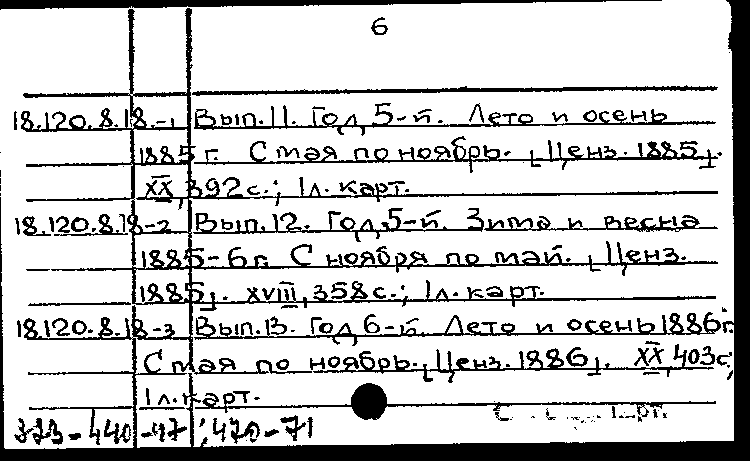 6
18.120.8.18.-1 Вып.11. Год 5-й. Лето и осень
1885 г. С мая по ноябрь. [Ценз. 1885].
XX, 392с.; 1л. карт.
18.120.8.18-2 Вып.12. Год 5-й. Зима и весна
1885-6г. С ноября по май. [Ценз.
1885]. XVIII, 358с.; 1л. карт.
18.120.8.18-3 Вып.13. Год 6-й. Лето и осень 1886г.
С мая по ноябрь. [Ценз. 1886]. XX, 403с;
1л. карт.
-440-47; 470-71